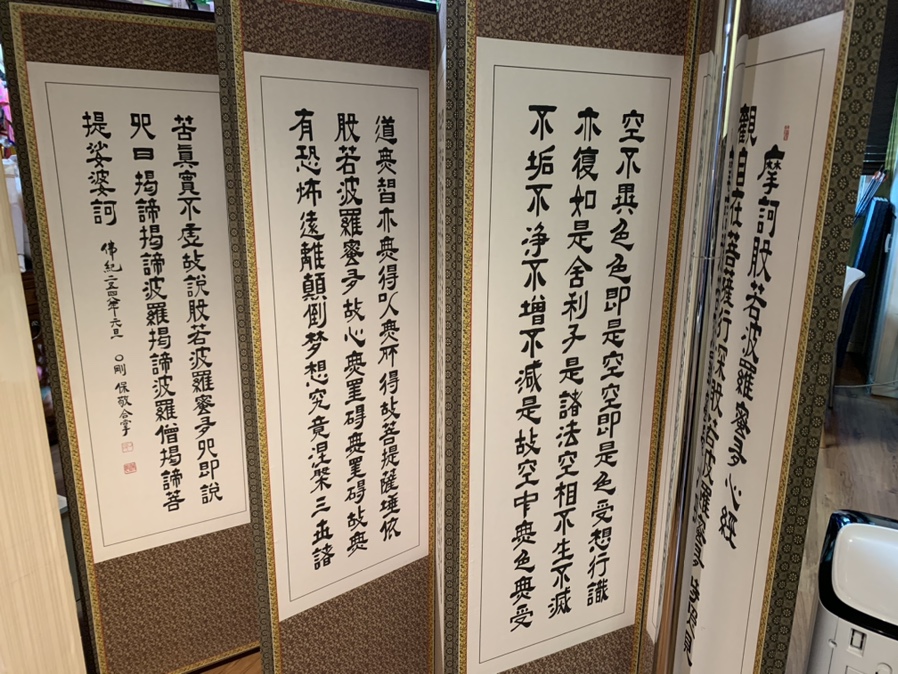 摩訶般若波羅蜜多心經
觀自在菩薩行深般若波羅蜜多時照見
空不異色色即是空空即是色受想行識
亦復如是舍利子是諸法空相不生不滅
不垢不净不增不減是故空中無色無受
道無智亦無得以無所得故菩提薩埵依
般若波羅蜜多故心無罣碍無罣碍故無
有恐怖遠離顛倒梦想究竟涅槃三世諸
苦眞實不虛故說般若波羅蜜多呪即說
呪曰揭諦揭諦波羅揭諦波羅僧揭諦菩
提娑婆訶
佛紀二五四年元旦 剛 保敬合掌